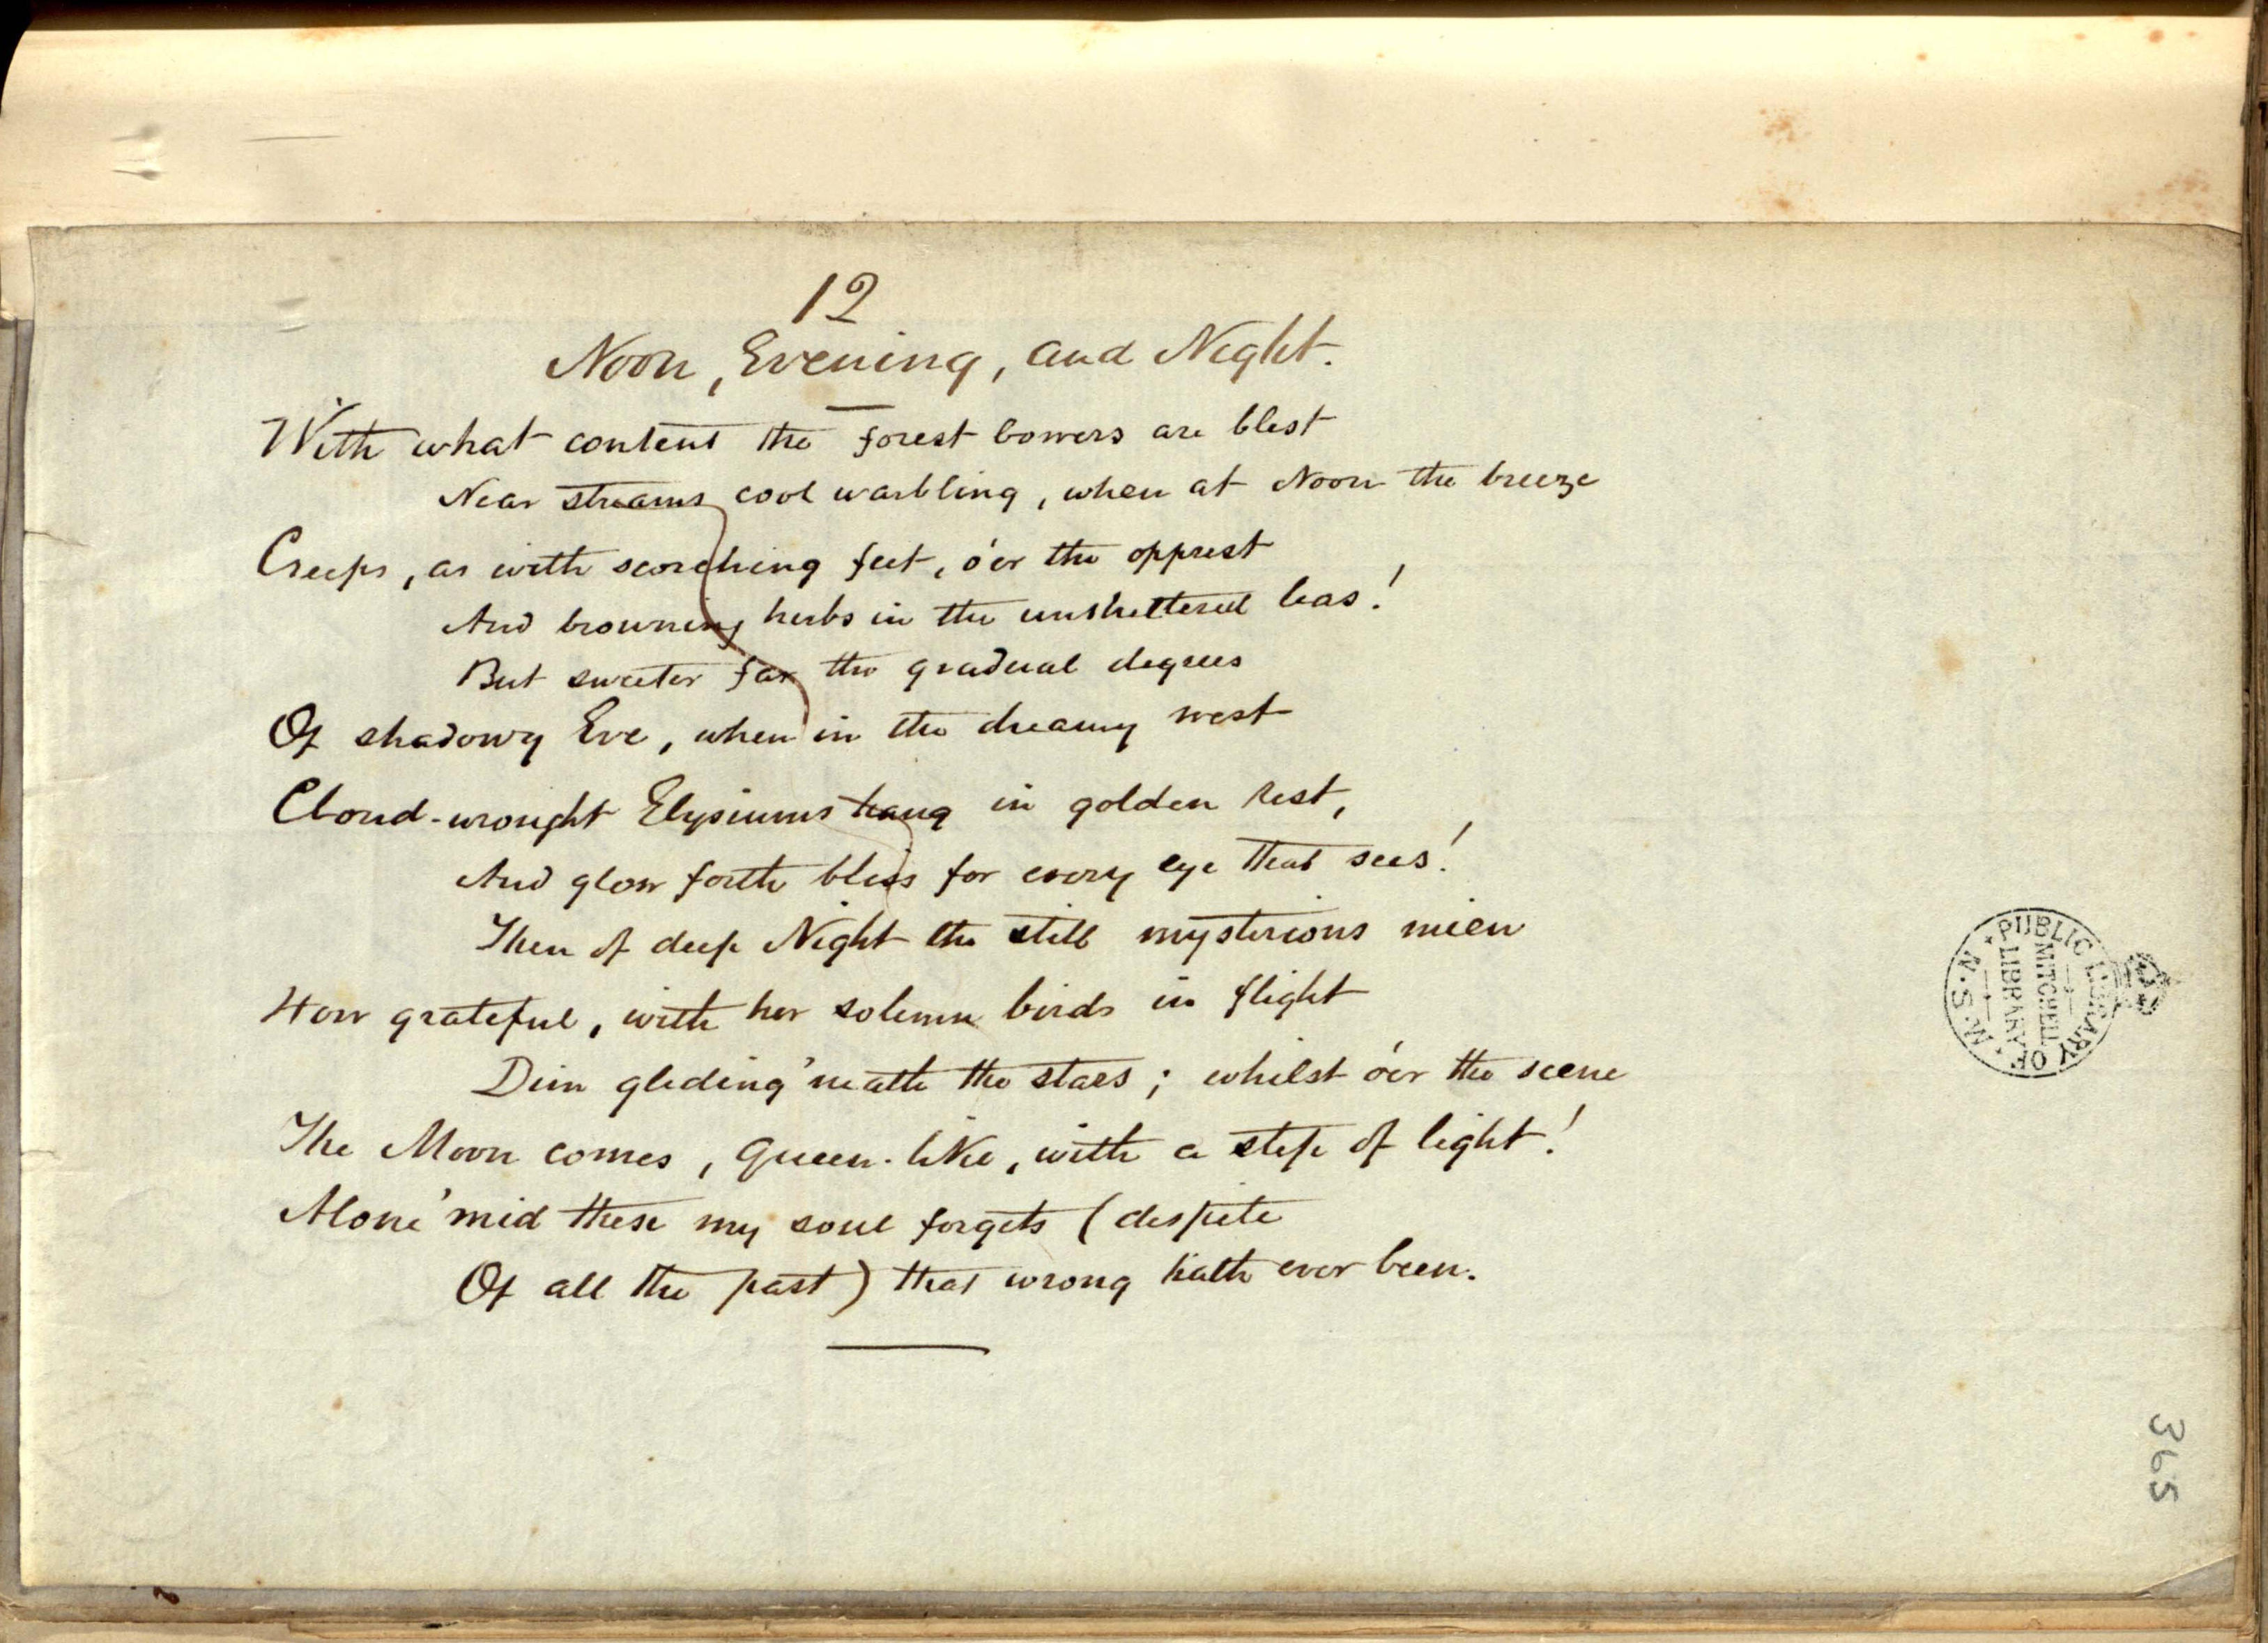 12
Noon, Evening, and Night.
With what content the forest bowers are blest
Near streams cool warbling, when at Noon the breeze
Creeps, as with scorching feet, o'er the opprest
And browning herbs in the unsheltered leas!
But sweeter far the gradual degrees
Of shadowy Eve, when in the dreamy west
Cloud-wrought Elysiums hang in golden rest,
And glow forth bliss for every eye that sees!
Then of deep Night the still mysterious mien
How grateful, with her solemn birds in flight
Dim gliding 'neath the stars; whilst o'er the scene
The Moon comes, queen-like, with a step of light!
Alone 'mid these my soul forgets (despite
Of all the past) that wrong hath ever been.
PUBLIC LIBRARY OF N.S.W.
MITCHELL
LIBRARY
365